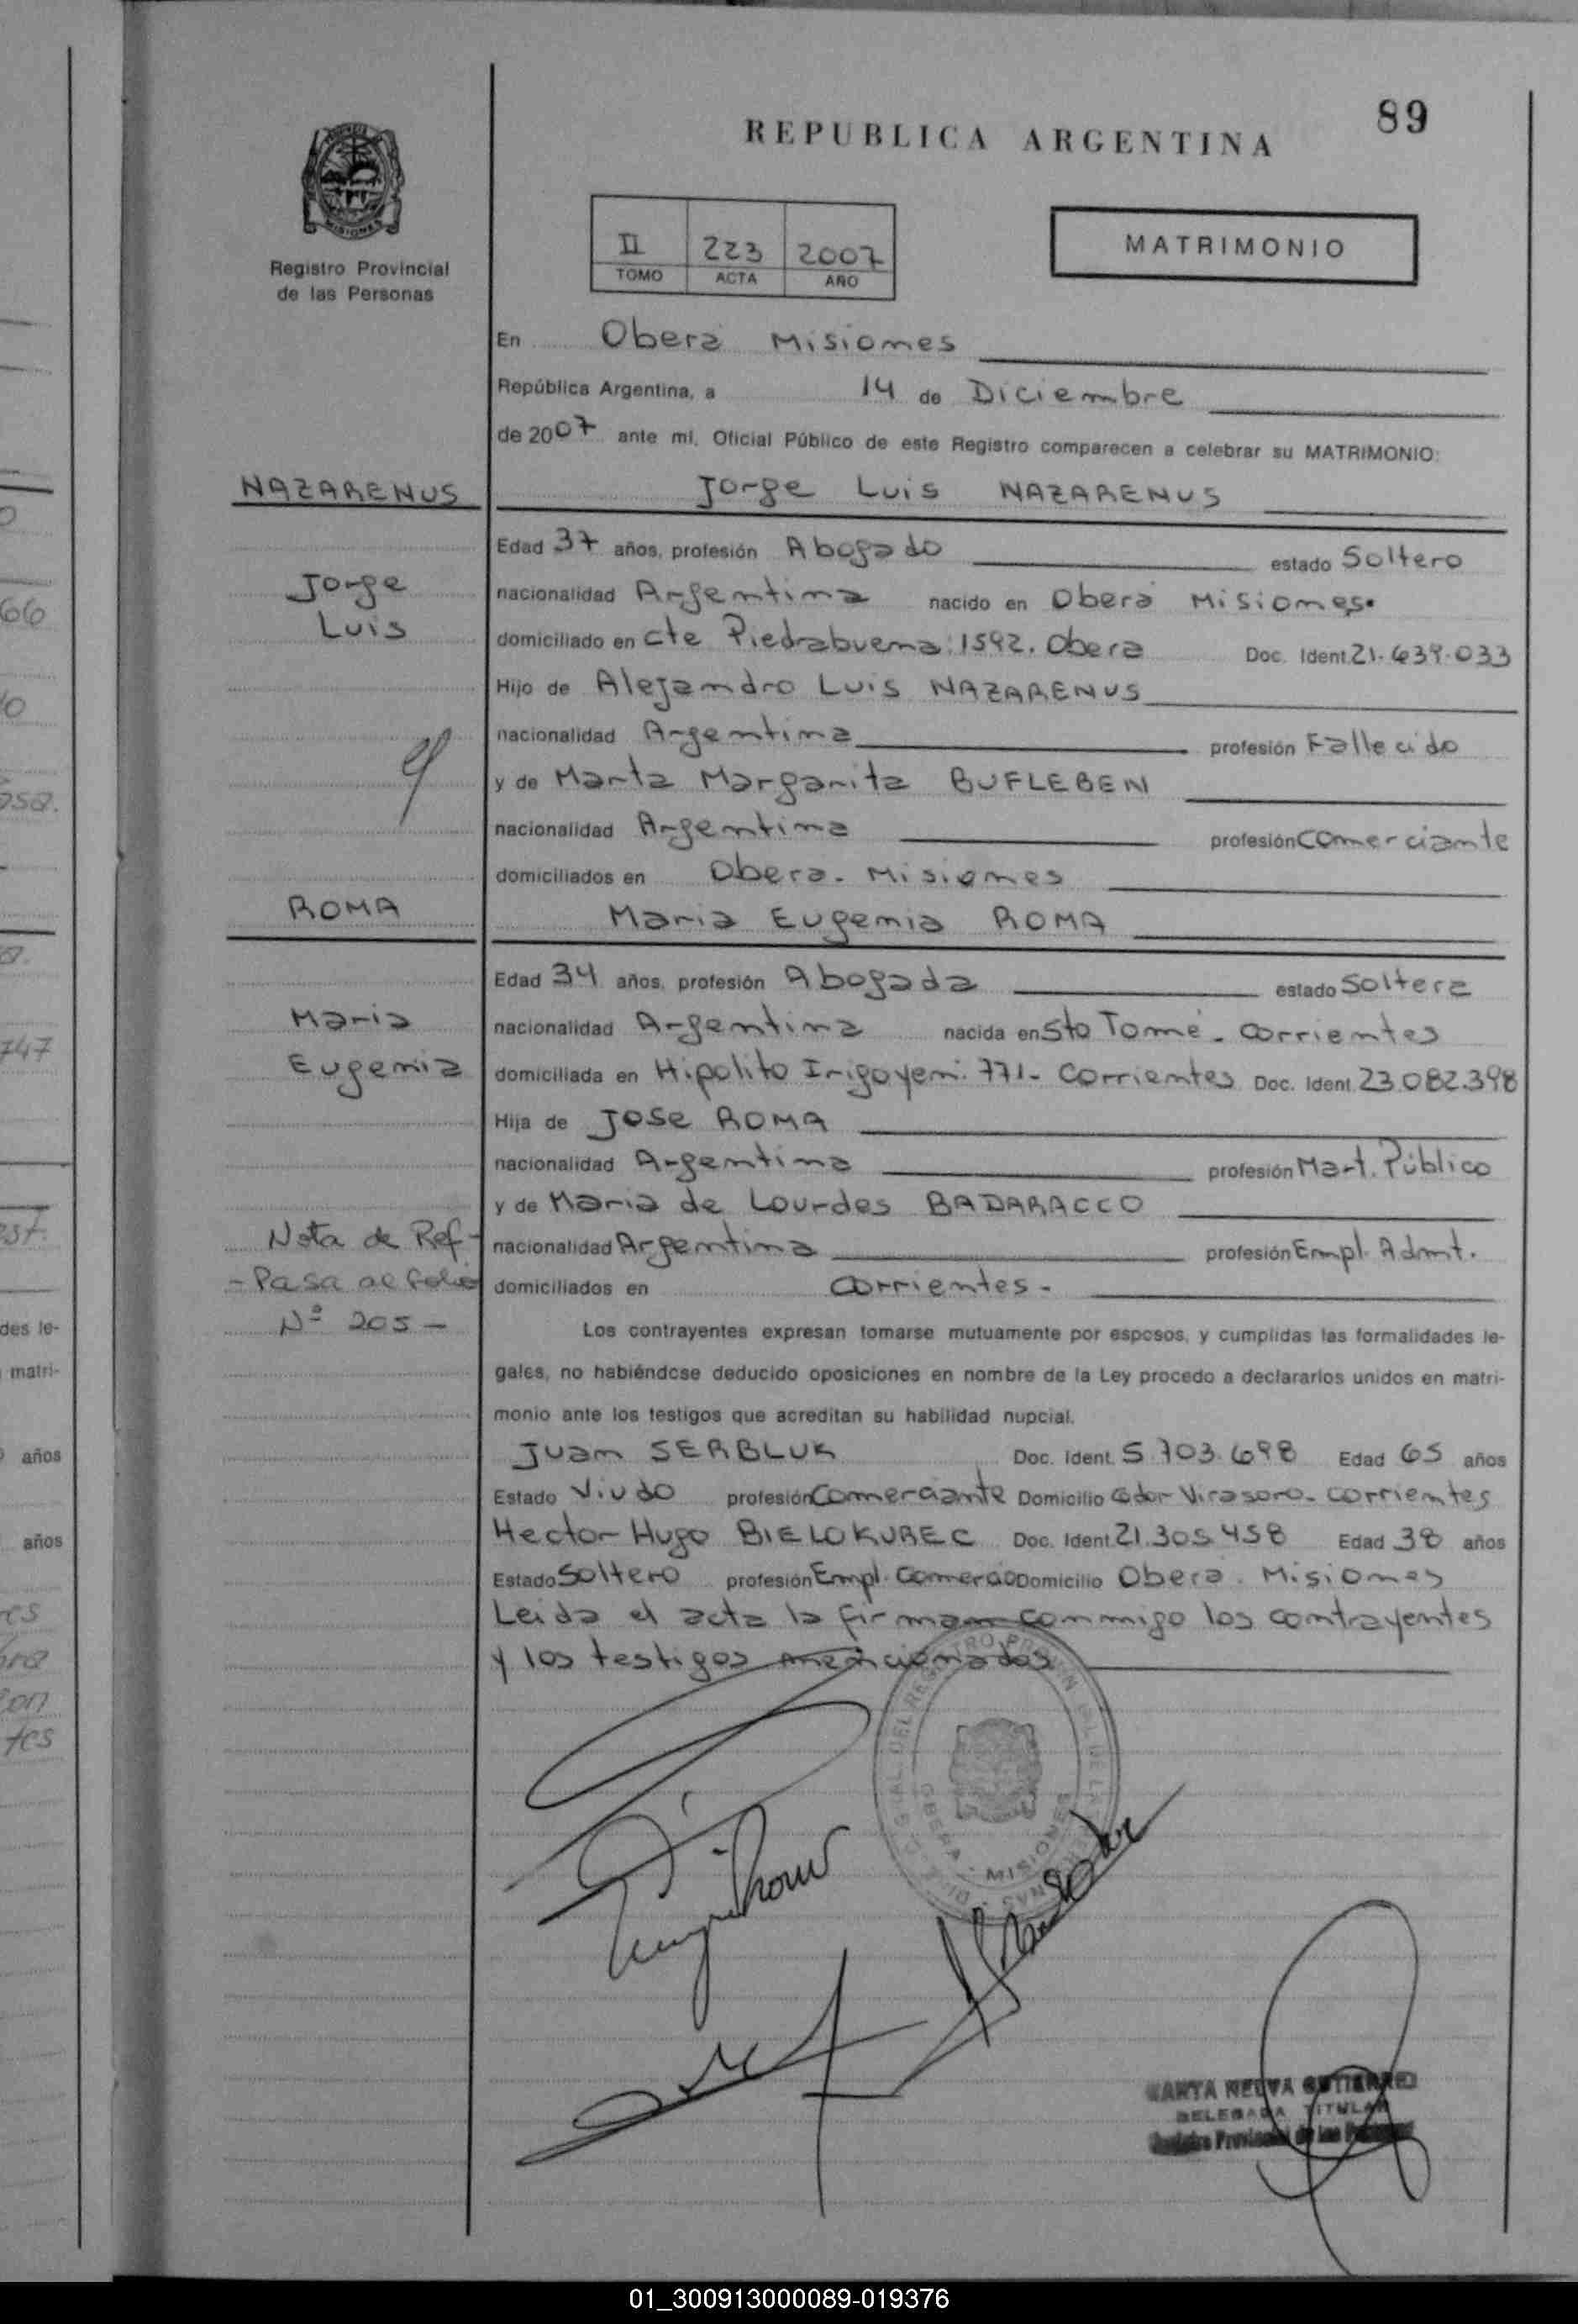 89
REPUBLICA ARGENTINA
MISIONES
Registro Provincial
de las Personas
II 223 2007
TOMO ACTA AÑO
MATRIMONIO
En Oberá Misiones
República Argentina, a 14 de Diciembre
de 2007 ante mí, Oficial Público de este Registro comparecen a celebrar su MATRIMONIO:
NAZARENUS
Jorge Luis NAZARENUS
Edad 37 años, profesión Abogado estado Soltero
Jorge
nacionalidad Argentina nacido en Oberá Misiones.
Luis
domiciliado en Cte Piedrabuena: 1592. Obera Doc. Ident. 21.639.033
Hijo de Alejandro Luis NAZARENUS
nacionalidad Argentina profesión Fallecido
y de Marta Margarita BUFLEBEN
nacionalidad Argentina profesión Comerciante
domiciliados en Obera. Misiones
ROMA
Maria Eugenia ROMA
Edad 34 años, profesión Abogada estado Soltera
Maria
nacionalidad Argentina nacida en Sto Tomé - Corrientes
Eugenia
domiciliada en Hipolito Irigoyen: 771- Corrientes Doc. Ident. 23.082.398
Hija de Jose ROMA
nacionalidad Argentina profesión Mart. Público
y de Maria de Lourdes BADARACCO
Nota de Ref-
nacionalidad Argentina profesión Empl. Admt.
- Pasa al folio
domiciliados en Corrientes -
Nº 205 -
Los contrayentes expresan tomarse mutuamente por esposos, y cumplidas las formalidades le-
gales, no habiéndose deducido oposiciones en nombre de la Ley procedo a declararlos unidos en matri-
monio ante los testigos que acreditan su habilidad nupcial.
Juan SERBLUK Doc. Ident. 5.703.698 Edad 65 años
Estado Viudo profesión Comerciante Domicilio Gdor Virasoro - Corrientes
Hector Hugo BIELOKUREC Doc. Ident. 21.305.458 Edad 38 años
Estado Soltero profesión Empl. Comercio Domicilio Oberá. Misiones
Leida el acta la firman conmigo los contrayentes
y los testigos mencionados
OBERA - MISIONES
MARTA NELVA GUTIERREZ
DELEGADA TITULAR
Registro Provincial de las Personas
66
747
des le-
matri-
años
años
tes
01_300913000089-019376